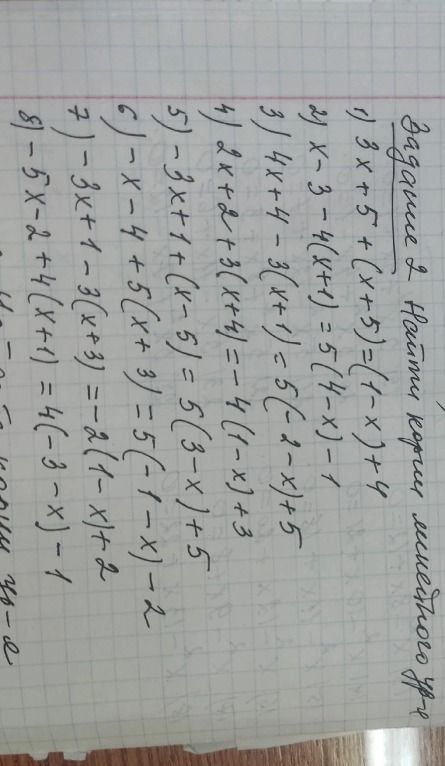 Задание 2 Найти корни линейного ур-е
1) 3x+5+(x+5)=(1-x)+4
2) x-3-4(x+1)=5(4-x)-1
3) 4x+4-3(x+1)=5(-2-x)+5
4) 2x+2+3(x+4)=-4(1-x)+3
5) -3x+1+(x-5)=5(3-x)+5
6) -x-4+5(x+3)=5(-1-x)-2
7) -3x+1-3(x+3)=-2(1-x)+2
8) -5x-2+4(x+1)=4(-3-x)-1
корни ур-е